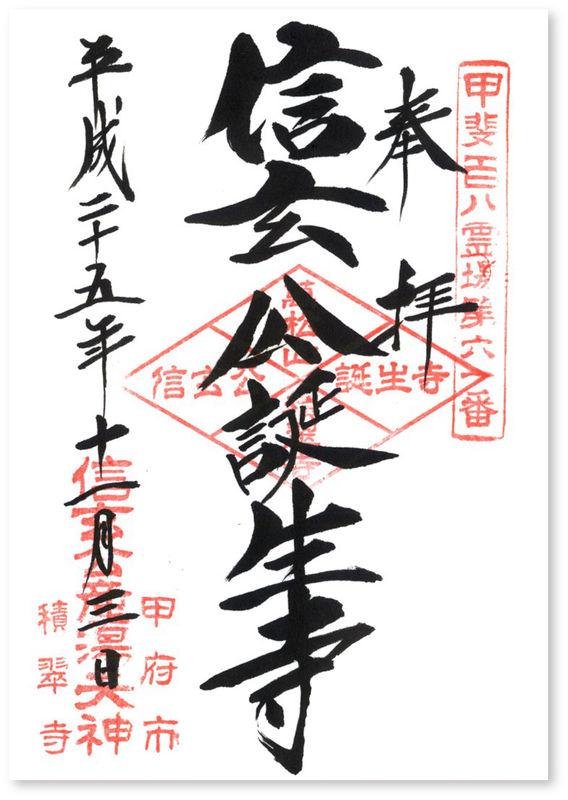 甲斐百八霊場第六一番
奉拝
信玄公誕生寺
萬松山
積翠寺
信玄公
誕生寺
平成二十五年十一月三日
甲府市
信玄公産湯天神
積翠寺